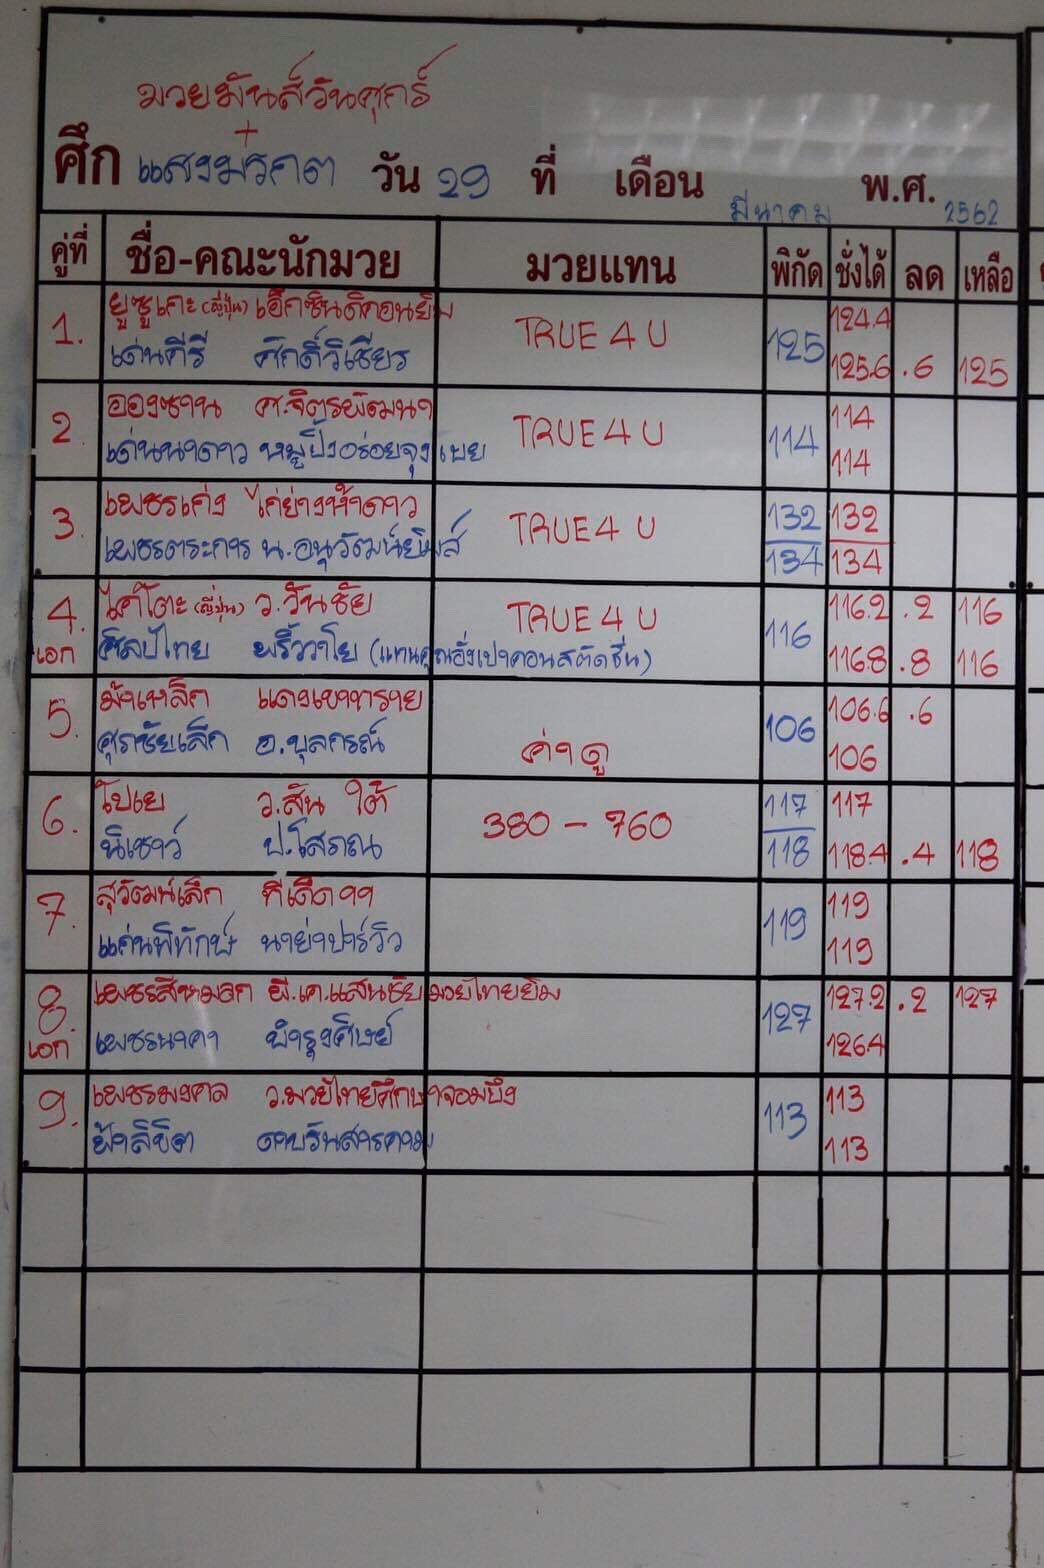 มวยมันส์วันศุกร์
+
ศึก แสงมรกต วัน 29 ที่ เดือน มีนาคม พ.ศ. 2562
คู่ที่ ชื่อ-คณะนักมวย มวยแทน พิกัด ชั่งได้ ลด เหลือ
1. ยูซูเกะ (ญี่ปุ่น) เอ็กซินดิคอนยิม TRUE 4 U 125 124.4
เด่นคีรี ศักดิ์วิเชียร 125.6 .6 125
2. อองซาน ศ.จิตรพัฒนา TRUE 4 U 114 114
เด่นนาดาว หมูปิ้งอร่อยจุงเบย 114
3. เพชรเก่ง ไก่ย่างห้าดาว TRUE 4 U 132 132
เพชรตระการ น.อนุวัฒน์ยิมส์ 134 134
4. ไคโตะ (ญี่ปุ่น) ว.วันชัย TRUE 4 U 116 116.2 .2 116
เอก ศิลป์ไทย พริ้ววาโย (แทนคุณอิ่งเปาคอนสตัคชั่น) 116.8 .8 116
5. ม้าเหล็ก แดงเขาทราย 106 106.6 .6
ศุภชัยเล็ก อ.บุลกรณ์ ค่าดู 106
6. โปเย ว.สัน ใต้ 380 - 760 117 117
นิเชาว์ ป.โสภณ 118 118.4 .4 118
7. สุวัฒน์เล็ก ทีเด็ด 99 119 119
แก่นพิทักษ์ นายำปาร์วิว 119
8. เพชรสีหมอก พี.เค.แสนชัยมวยไทยยิม 127 127.2 .2 127
เอก เพชรนาคา 126.4
9. เพชรมงคล ว.มวยไทยศึกษาจอมบึง 113 113
ฟ้าลิขิต ดาบรันสารคาม 113